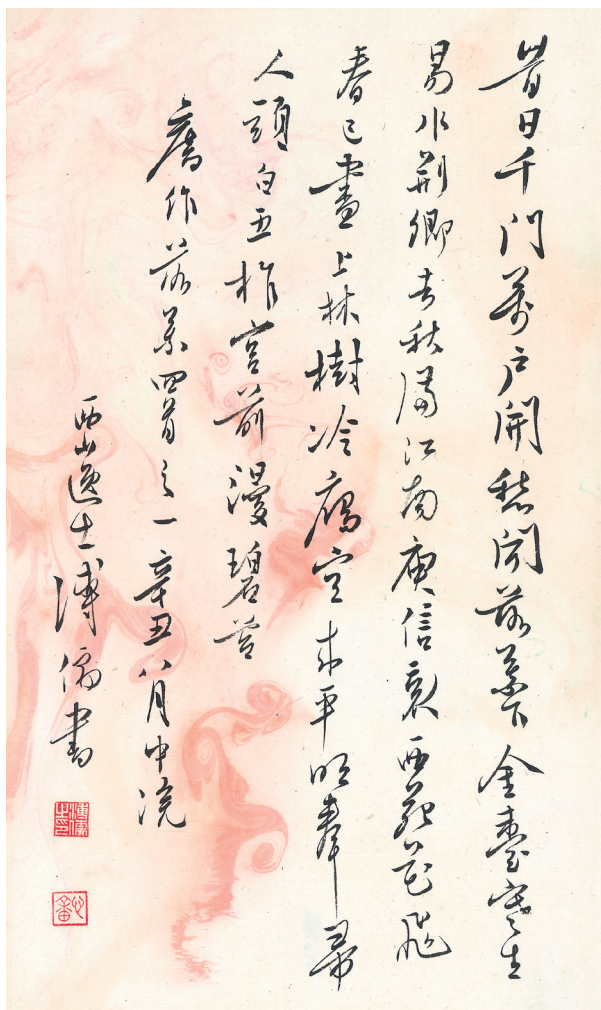 昔日千門萬戶開愁聞落葉下金臺寒生
易水荊卿去秋滿江南庾信哀西苑花飛
春已盡上林樹冷雁空來平明奉帚
人頭白五柞宮前漫碧苔
舊作落葉四首之一辛丑八月中浣
西山逸士溥儒書
溥儒之印
心畬